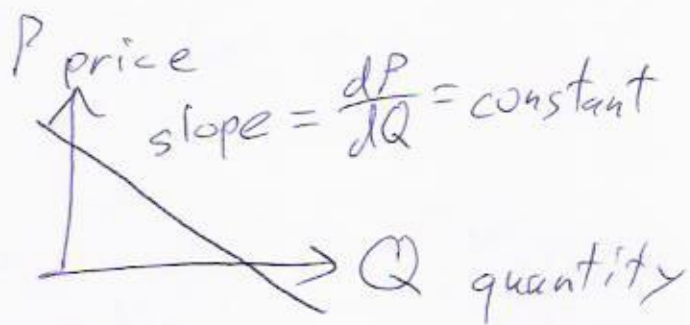 P price
slope = dP/dQ = constant
Q quantity